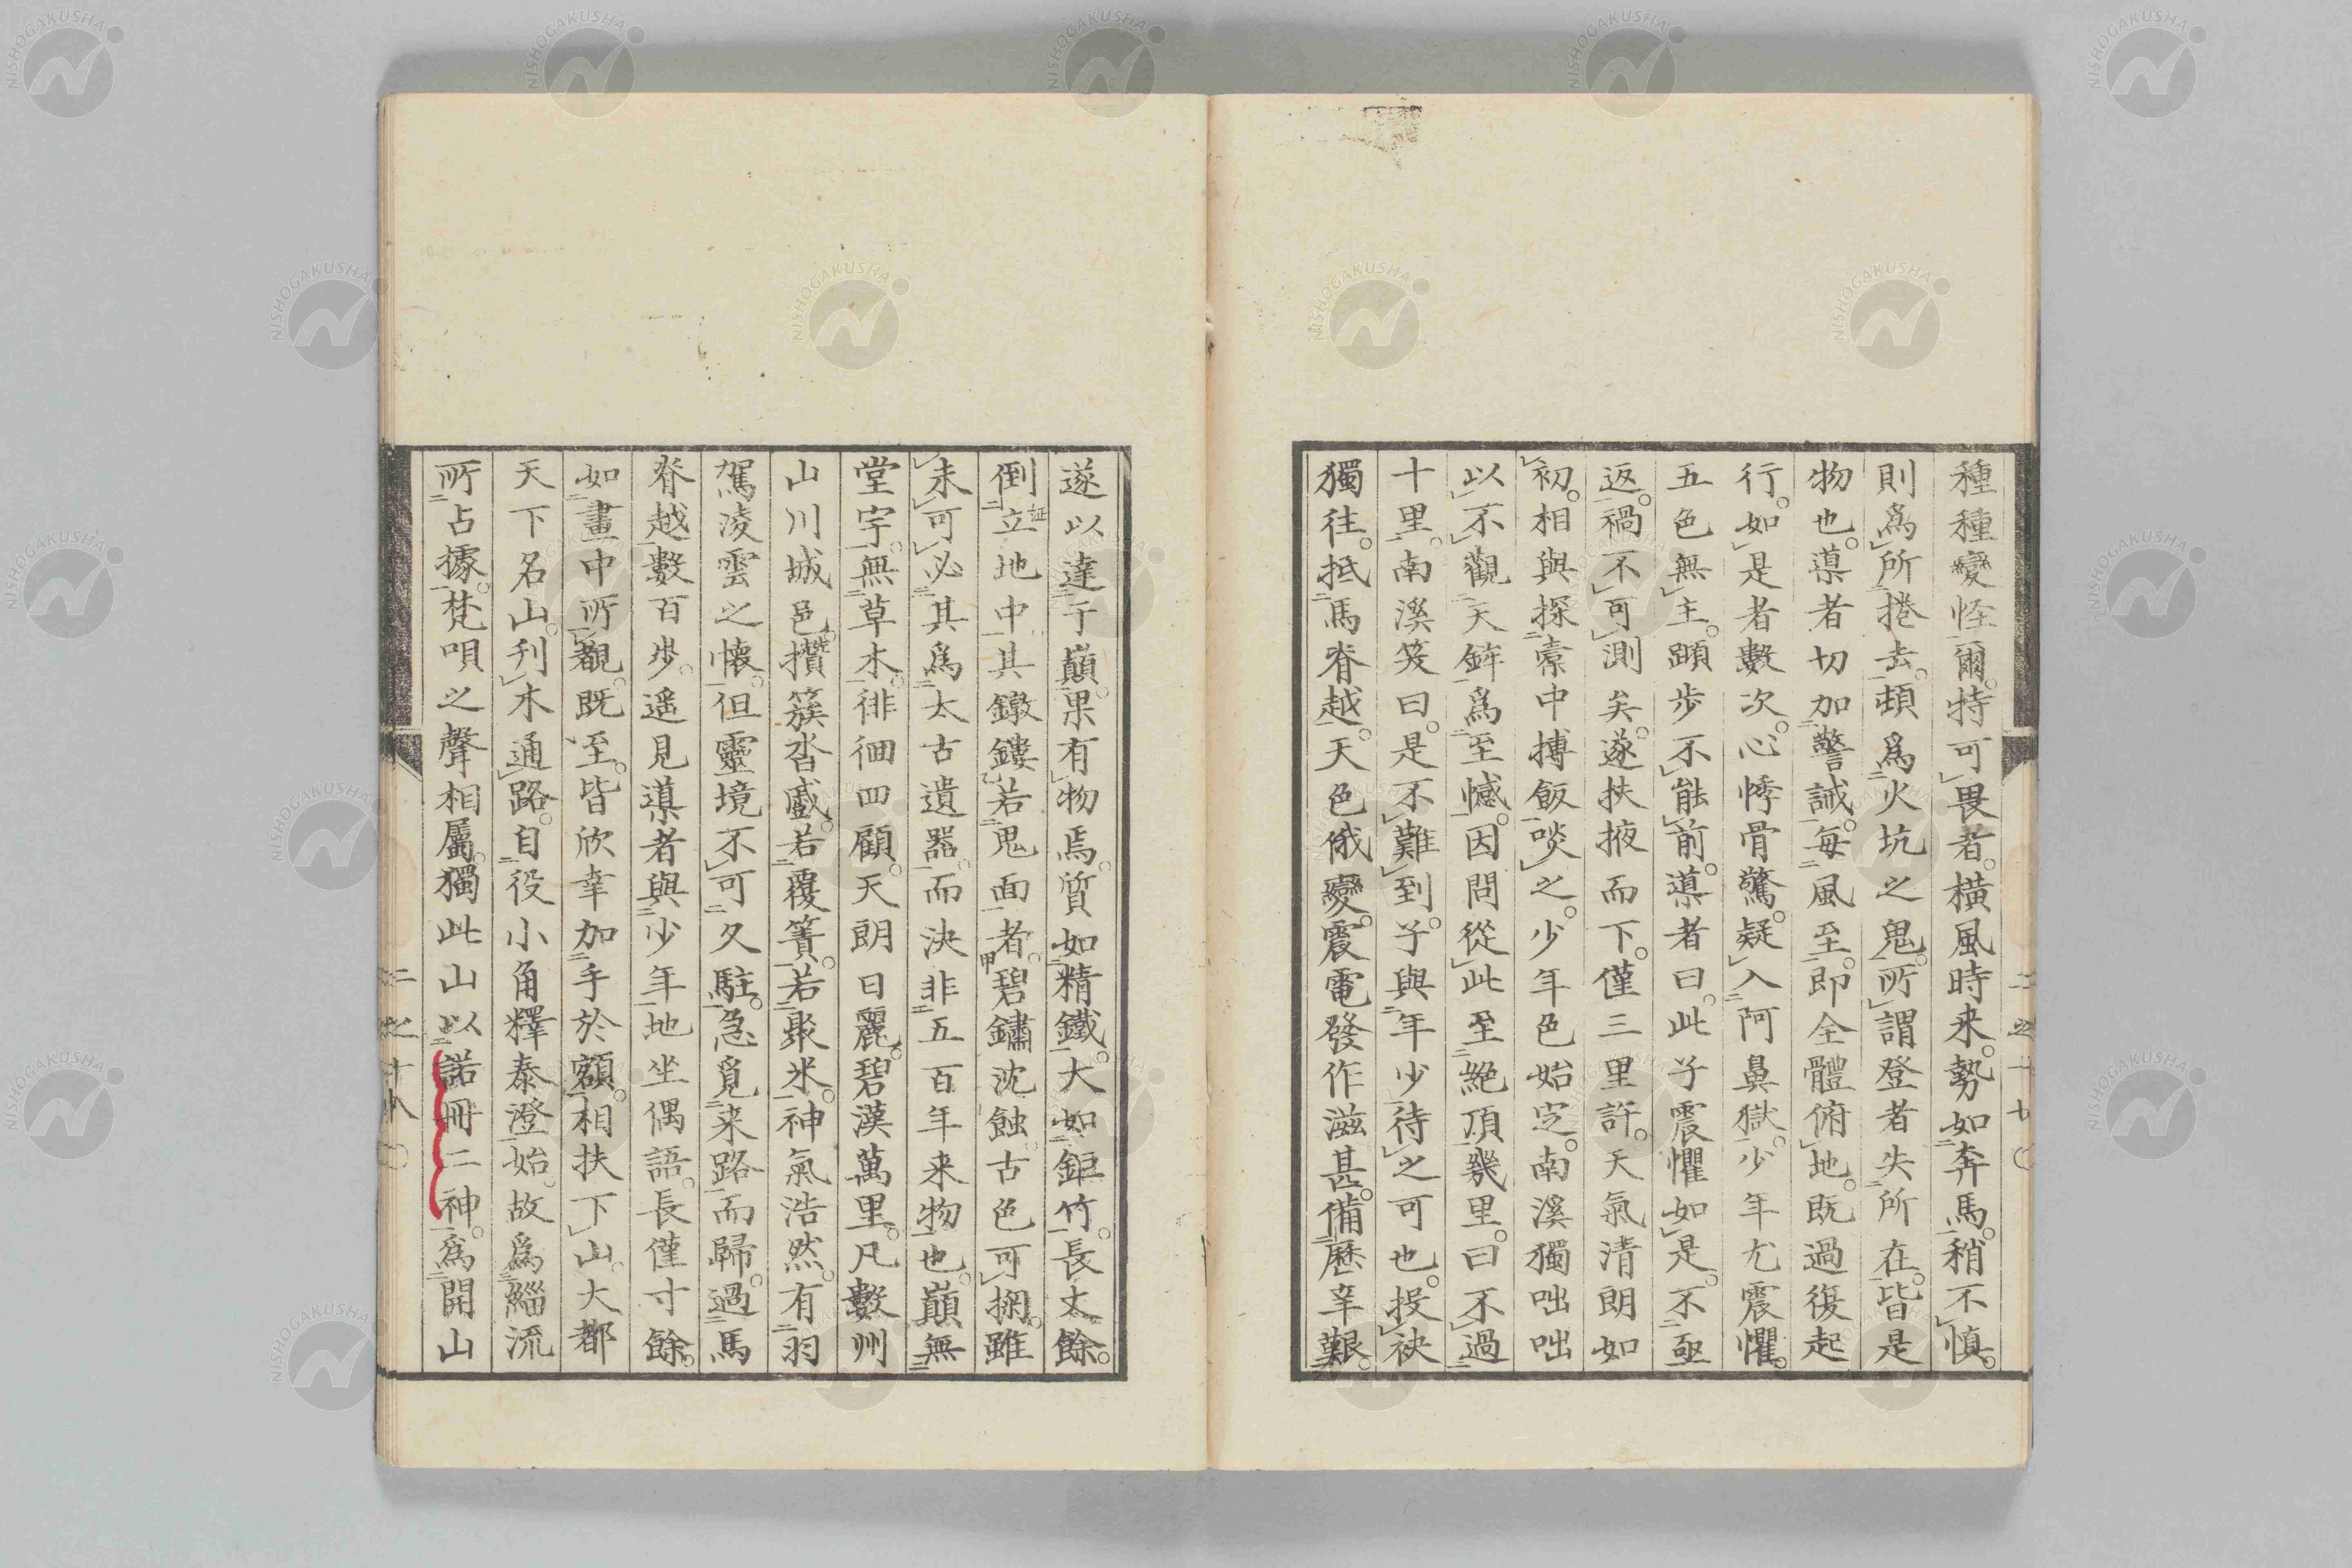 種種變怪爾。特可畏者。橫風時来。勢如奔馬。稍不愼。
則爲所捲去。頓爲火坑之鬼。所謂登者失所在。皆是
物也。導者切加警誡。每風至。即全體俯地。既過復起
行。如是者數次。心悸骨驚。疑入阿鼻獄。少年尤震懼。
五色無主。頭步不能前。導者曰。此子震懼如是。不亟
返。禍不可測矣。遂扶掖而下。僅三里許。天氣清朗如
初。相與探橐中搏飯啖之。少年色始定。南溪獨咄咄
以不觀天鉾爲至憾。因問從此至絶頂幾里。曰不過
十里。南溪笑曰。是不難到。子與年少待之可也。投袂
獨往。抵馬脊越。天色俄變。震電發作滋甚。備歷辛艱。
二之十七
遂以達于巔。果有物焉。質如精鐵。大如鉅竹。長丈餘。
倒立地中。其鐓鏤若鬼面者。碧鏽沈蝕。古色可掬。雖
未可必其爲太古遺器。而決非五百年来物也。巔無
堂宇。無草木。徘徊四顧。天朗日麗。碧漢萬里。凡數州
山川城邑。攢簇沓戯。若覆簣。若聚米。神氣浩然。有羽
駕凌雲之懷。但靈境不可久駐。急覓来路而歸。過馬
脊越數百步。遥見導者與少年地坐偶語。長僅寸餘。
如畫中所覩。既至。皆欣幸加手於額。相扶下山。大都
天下名山。刊木通路。自役小角釋泰澄始。故爲緇流
所占據。梵唄之聲相屬。獨此山以諾冊二神。爲開山
二之十八
NISHOGAKUSHA